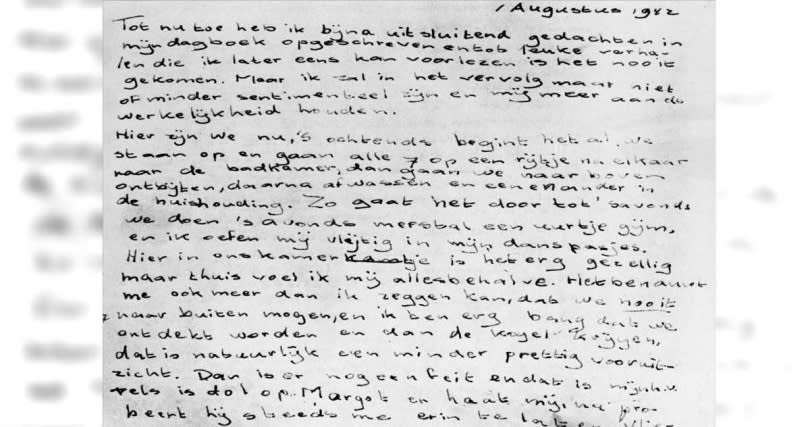 1 Augustus 1942
Tot nu toe heb ik bijna uitsluitend gedachten in
mijn dagboek opgeschreven en tot leuke verha-
len die ik later eens kan voorlezen is het nooit
gekomen. Maar ik zal in het vervolg maar niet
of minder sentimenteel zijn en mij meer aan de
werkelijkheid houden.
Hier zijn we nu, 's ochtends begint het al, we
staan op en gaan alle 7 op een rijtje na elkaar
naar de badkamer, dan gaan we naar boven
ontbijten, daarna afwassen en een en ander in
de huishouding. Zo gaat het door tot 's avonds
we doen 's avonds meestal een uurtje gijm,
en ik oefen mij vlijtig in mijn danspasjes.
Hier in ons kamer is het erg gezellig
maar thuis voel ik mij allesbehalve. Het benauwt
me ook meer dan ik zeggen kan, dat we nooit
naar buiten mogen, en ik ben erg bang dat we
ontdekt worden en dan de kogel krijgen,
dat is natuurlijk een minder prettig vooruit-
zicht. Dan is er nog een feit en dat is mijnh. v.
Pels is dol op Margot en haat mij, nu pro-
beert hij steeds me erin te laten